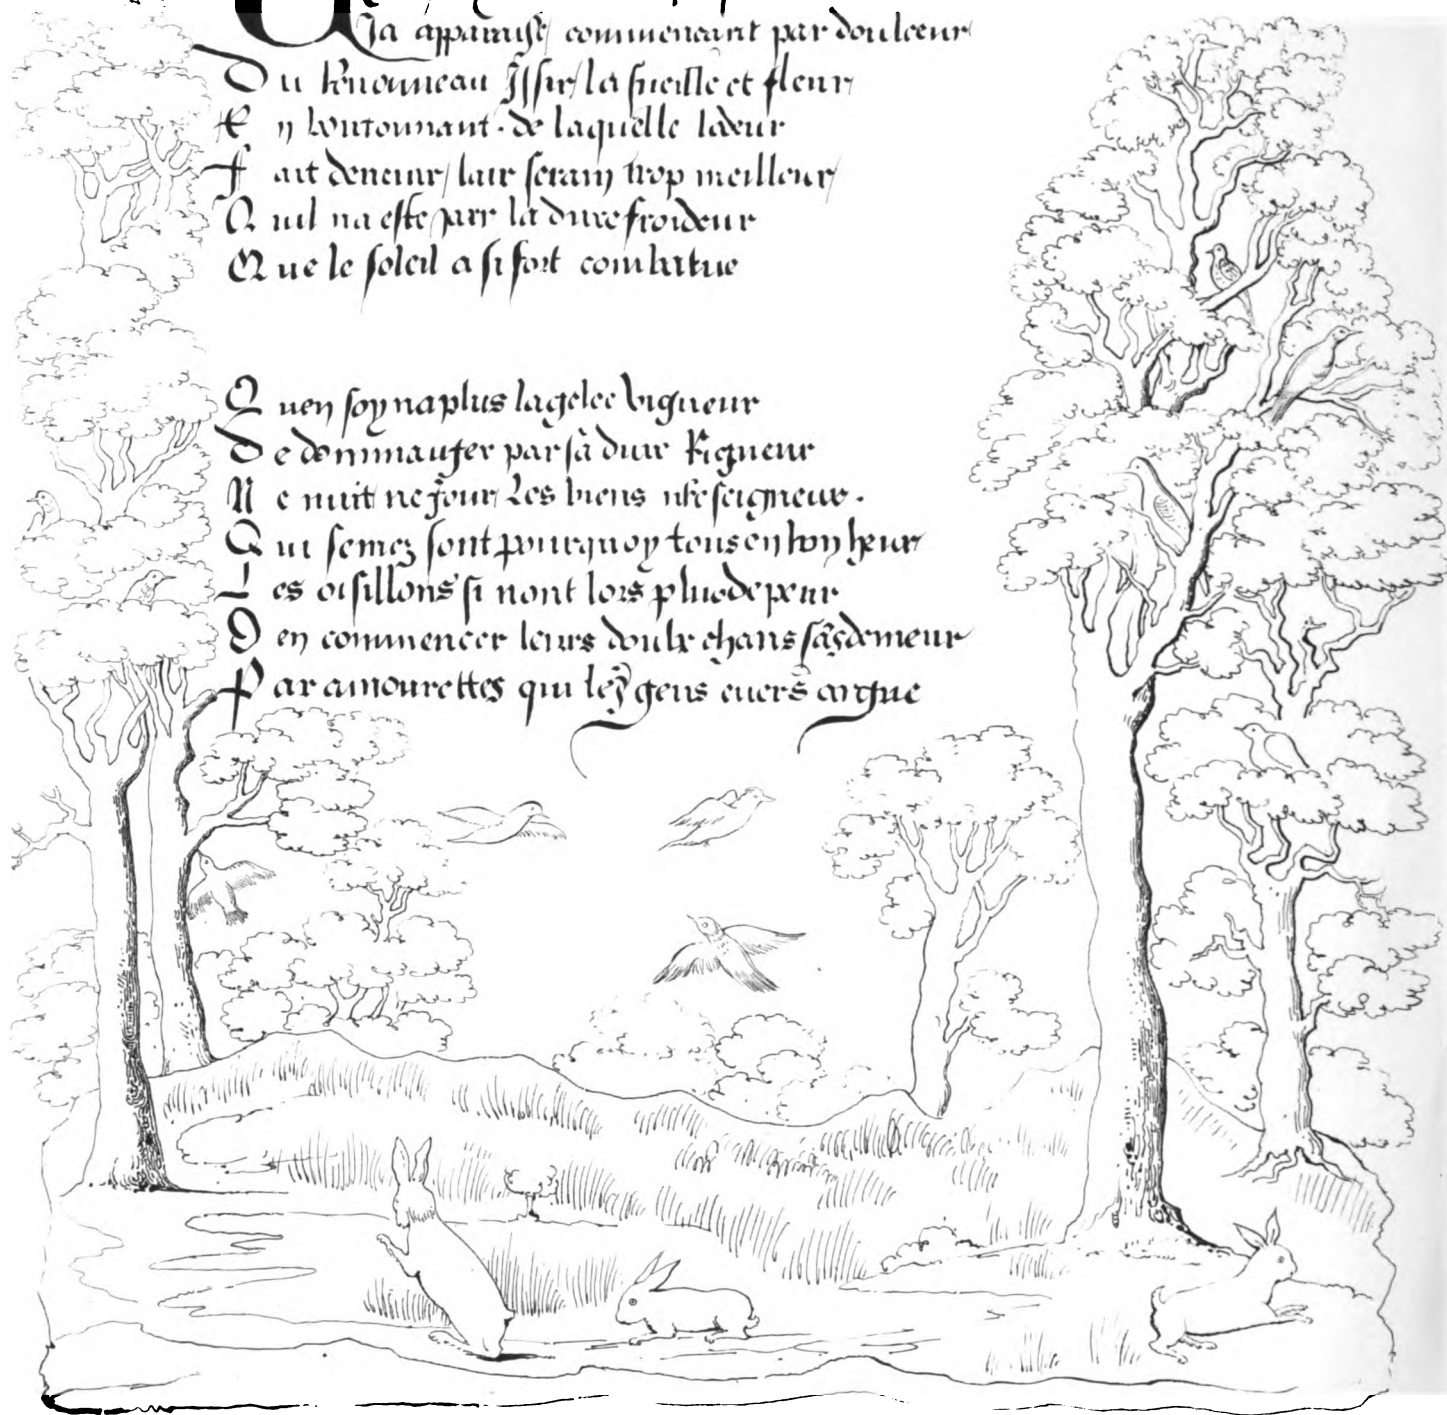 Ja apparaist commencant par doulceur
Du Renouueau Issir la fueille et fleur
En boutonnant de laquelle lodeur
Fait deneur lair serain trop meilleur
Quil na este par la dure froideur
Que le soleil a si fort combatue
Quen soy na plus la gelee vigueur
De dommauger par sa dure Rigueur
Ne nuit ne jour Les biens nre seigneur.
Qui semez sont pourquoy tous en bon heur
Les oisillons si nont lors plus de peur
Den commencer leurs doulx chans sãs demeur
Par amourettes qui les gens euers argue